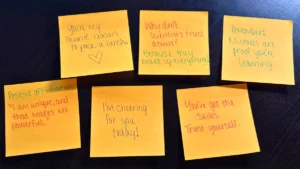 You're my
favorite reason
to
Why don't
scientists trust
atoms?
Because they
make up everything!
Reminder:
Mistakes are
proof you're
learning.
Positive affirmation:
"I am unique, and
that makes me
powerful."
I'm cheering
for you
today!
You've got the
skills.
Trust yourself.